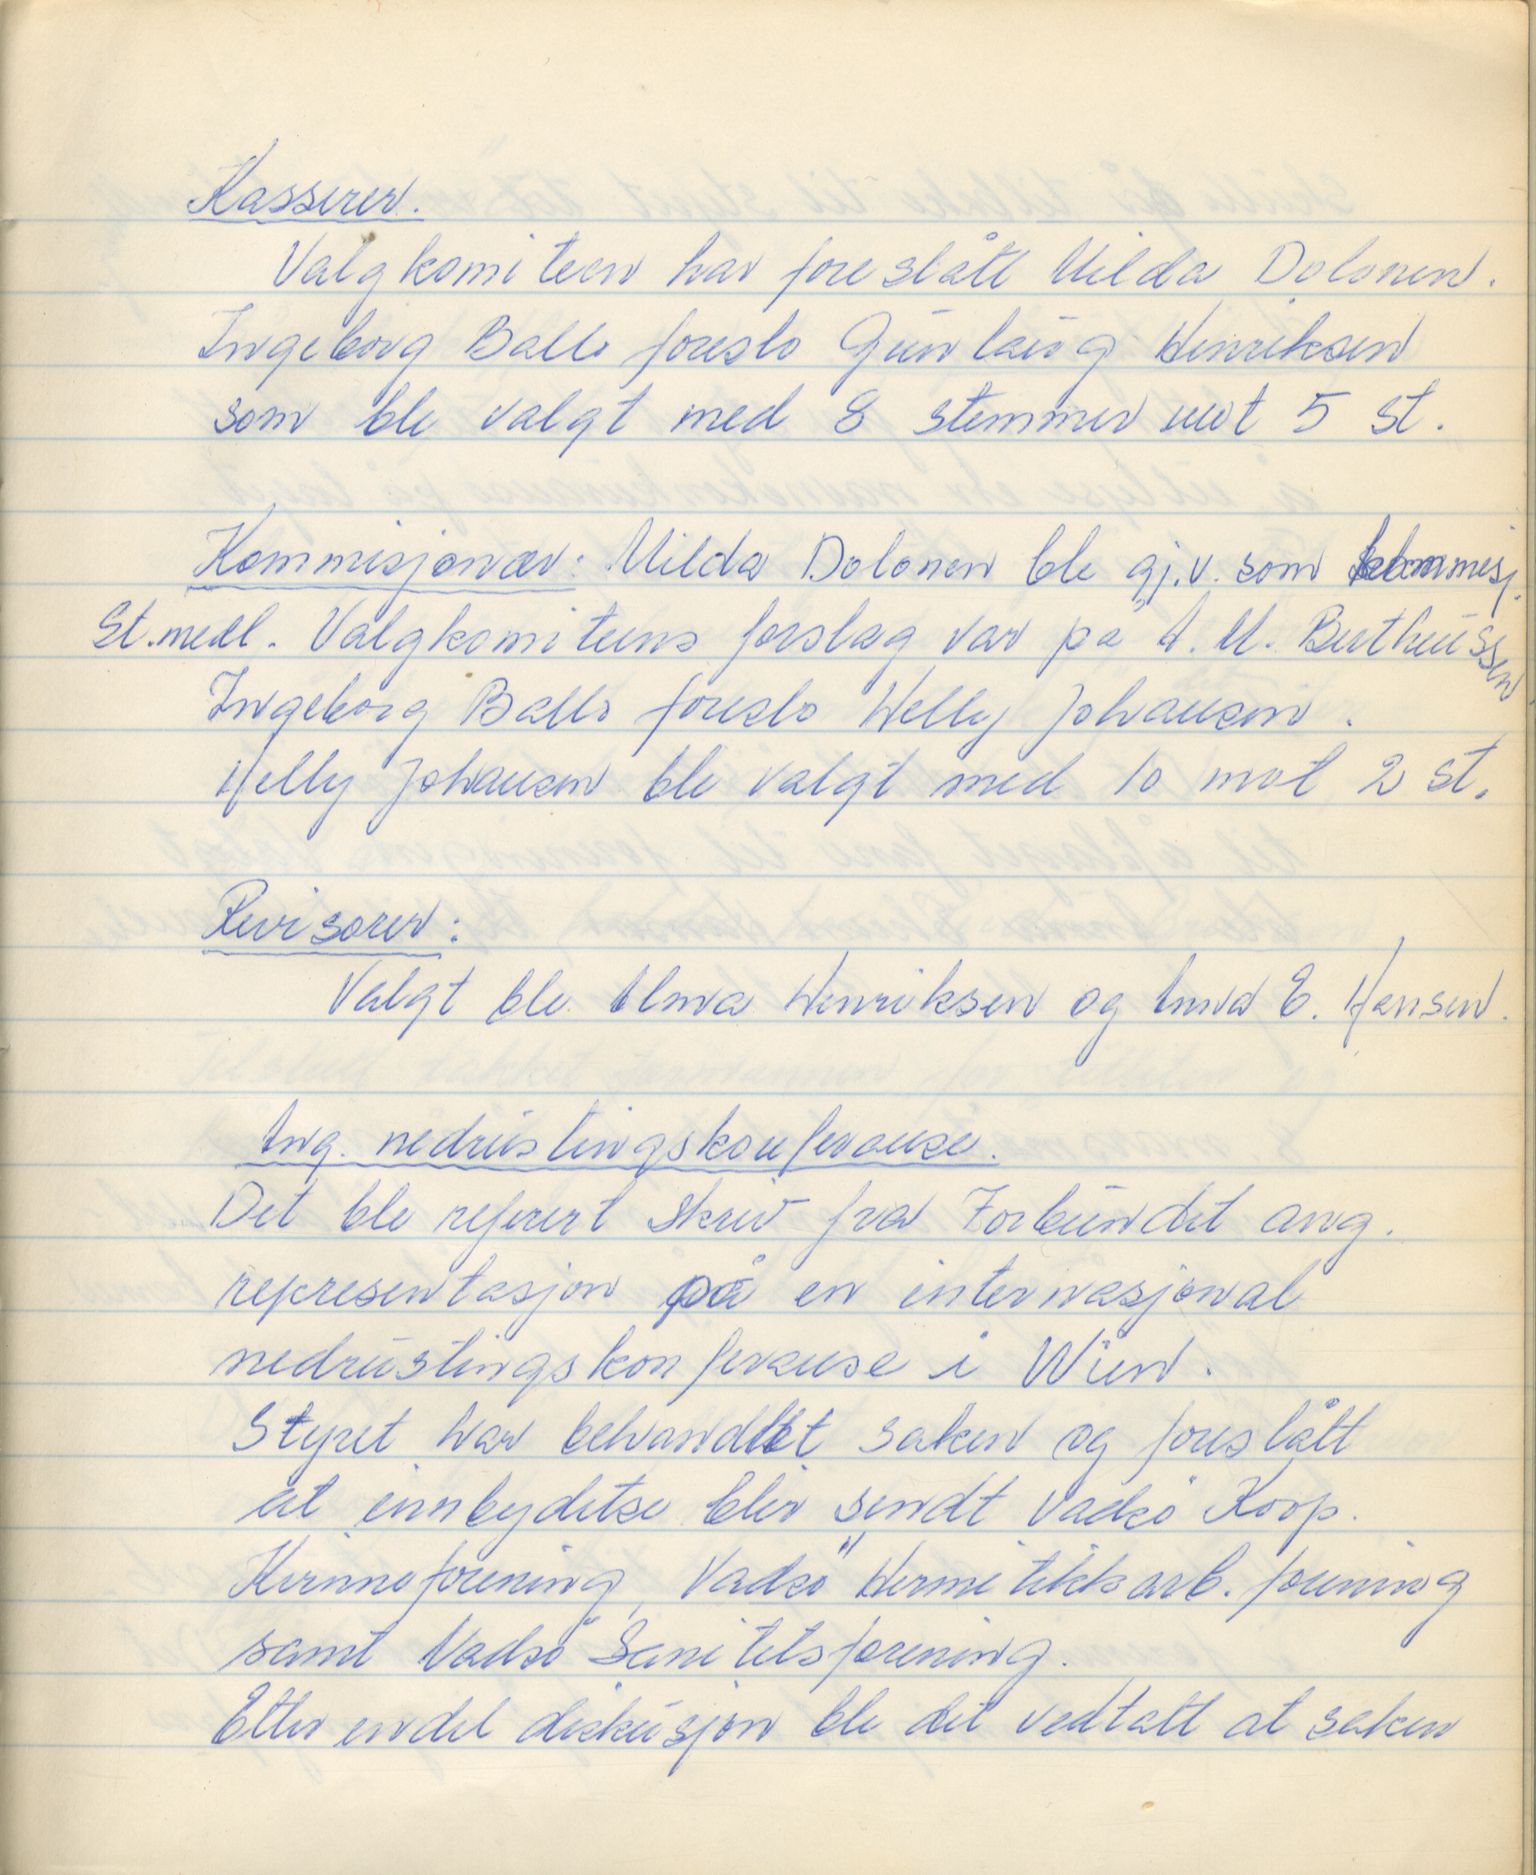 Kasserer.
Valgkomiteen har foreslått Milda Dolonen.
Ingeborg Ballo foreslo Gunlaug Henriksen
som ble valgt med 8 stemmer mot 5 st.
Kommisjonær: Milda Dolonen ble gj.v. som kommisj.
St.medl. Valgkomiteens forslag var på A. M. Bertheussen
Ingeborg Ballo foreslo Helly Johansen.
Helly Johansen ble valgt med 10 mot 2 st.
Revisorer:
Valgt ble Alma Henriksen og Anna E. Hansen.
Ang. nedrustingskonferanse.
Det ble referert skriv fra Forbundet ang.
representasjon på en internasjonal
nedrustingskonferanse i Wien.
Styret har behandlet saken og foreslått
at innbydelse blir sendt Vadsö Koop.
Kvinneforening, Vadsö Hermitikkarb. forening
samt Vadsö Sanitetsforening.
Etter endel diskusjon ble det vedtatt at saken